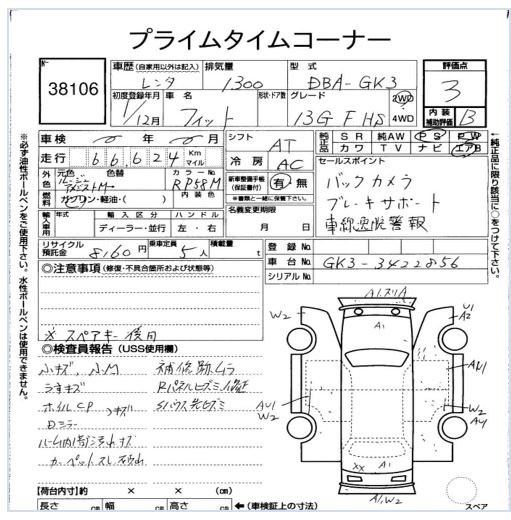 プライムタイムコーナー
No
38106
車歴 (自家用以外は記入)
レンタ
排気量
1300
型式
DBA-GK3
評価点
3
初度登録年月
1/12月
車名
フィット
形状・ドア数
グレード
13G F HS
2WD
4WD
内装
補助評価
B
車検 年 月
走行 66,624 Km
マイル
シフト
AT
冷房
AC
純正品
SR 純AW PS PW
カワ TV ナビ エアB
外色
元色
色替
カラーNo
RP58M
内装色
燃料
ガソリン・軽油( )
新車整備手帳
(保証書付)
有・無
※書類と一緒に保管して下さい。
セールスポイント
バックカメラ
ブレーキサポート
車線逸脱警報
名義変更期限
月 日
輸入車用
年式
輸入区分
ハンドル
ディーラー・並行
左・右
リサイクル
預託金
8160円
乗車定員
5人
積載量
t
登録No
車台No
GK3-3422856
シリアルNo
◎注意事項 (修復・不具合箇所および状態等)
※スペアキー後日
◎検査員報告 (USS使用欄)
小キズ、小凹
補修跡ムラ
うすキズ
Rパネルヒズミ、修正
ホイルCP キズ
Dミラー
ルーム内
カーペットスレ
A1
W2
U2
A2
W2
A1
AU1
AU1
W2
W2
U2
AU1
XX A1
A1,W2
スペア
【荷台内寸】約 × × (cm)
長さ cm 幅 cm 高さ cm
← (車検証上の寸法)
※必ず油性ボールペンをご使用下さい。水性ボールペンは使用できません。
←純正品に限り該当に○をつけて下さい。